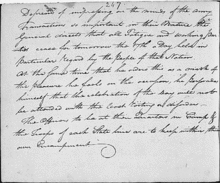 247
Desirous of impressing on the minds of the army
Transactions so important in their Nature the
General directs that all Fatigue and working Par
ties cease for tomorrow the 17th a Day held in
particular Regard by the People of this Nation
At the same time that he orders this as a mark of
the pleasure he feels on the occasion he persuades
himself that the celebration of the day will not
be attended with the least Rioting or disorder
The officers to be at their Quarters in Camp &
the Troops of each State line are to keep within their
own Encampment